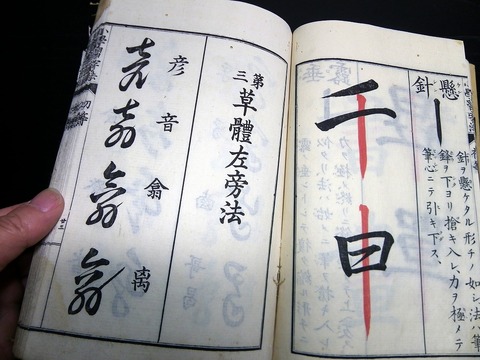 懸針
針ヲ懸ケタル形チノ如シ法ハ筆
鋒ヲ下ヨリ搶キ入レ力ヲ極メテ
筆心ニテ引キ下ス、
千
申
第三 草體左旁法
彦
音
离